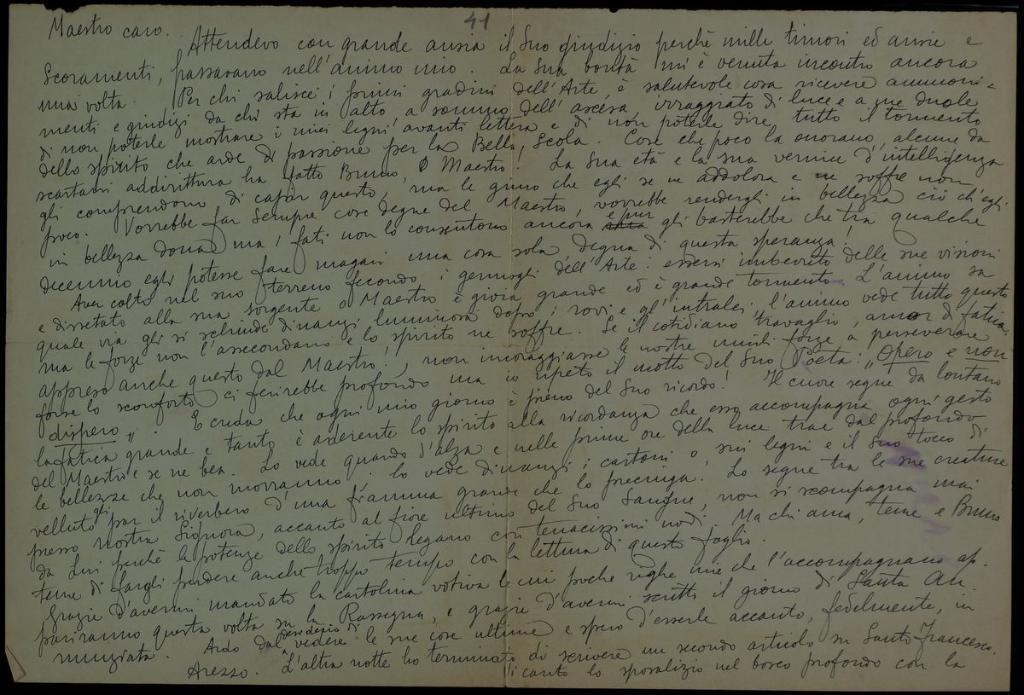 41
Maestro caro.
Attendevo con grande ansia il Suo giudizio perchè mille timori ed ansie e
scoramenti, passavano nell'animo mio. La Sua bontà mi è venuta incontro ancora
una volta. Per chi salisce i primi gradini dell'Arte, è salutevole cosa ricevere ammoni=
menti e giudizi da chi sta in alto a sommo dell'ascesa irraggiato di luce e a me duole
di non poterle mostrare i miei legni avanti lettera e di non poterle dire tutto il tormento
dello spirito che arde di passione per la Bella Scola. Cose che poco la onorano, alcune da
scartarsi addirittura ha fatto Bruno, O Maestro! La Sua età e la sua vernice d'intelligenza
gli comprendono di capir questo, ma le giuro che egli se ne addolora e ne soffre non
poco. Vorrebbe far sempre cose degne del Maestro, vorrebbe rendergli in bellezza ciò ch'egli
in bellezza dona ma i fati non lo consentono ancora e pur gli basterebbe che tra qualche
decennio egli potesse fare magari una cosa sola degna di questa speranza!
Aver colto nel suo terreno fecondo i germogli dell'Arte: essersi imbevuto delle sue visioni
e dissetato alla sua sorgente o Maestro è gioia grande ed è grande tormento. L'animo sa
quale via gli si schiude dinanzi luminosa dopo i rovi e gl'intralci, l'animo vede tutto questo
ma le forze non l'assecondano e lo spirito ne soffre. Se il cotidiano travaglio, amor di fatica
appreso anche questo dal Maestro, non incoraggiasse le nostre umili forze a perseverare
forse lo sconforto ci ferirebbe profondo ma io ripeto il motto del Suo Poeta: "Opero e non
dispero". E creda che ogni mio giorno è pieno del Suo ricordo! Il cuore segue da lontano
la fatica grande e tanto è aderente lo spirito alla ricordanza che esso accompagna ogni gesto
del Maestro e se ne bea. Lo vede quando s'alza e nelle prime ore della luce trae dal profondo
le bellezze che non morranno, lo vede dinanzi i cartoni o, sui legni e il Suo tocco di
velluto gli par il riverbero d'una fiamma grande che lo precinga. Lo segue tra le sue creature
presso nostra Signora, accanto al fiore ultimo del Suo Sangue, non si scompagna mai
da Lui perchè le potenze dello spirito legano con tenacissimi nodi. Ma chi ama, teme e Bruno
teme di fargli perdere anche troppo tempo con la lettura di questo foglio.
Grazie d'avermi mandato la cartolina votiva le mie poche righe che l'accompagnano ap=
pariranno questa volta su la Rassegna, e grazie d'avermi scritto il giorno di Santa An=
nunziata. Ardo dal desiderio di vedere le sue cose ultime e spero d'esserle accanto, fedelmente, in
Arezzo. L'altra notte ho terminato di scrivere un secondo articolo su Santo Francesco.
Vi canto lo sposalizio nel bosco profondo con la